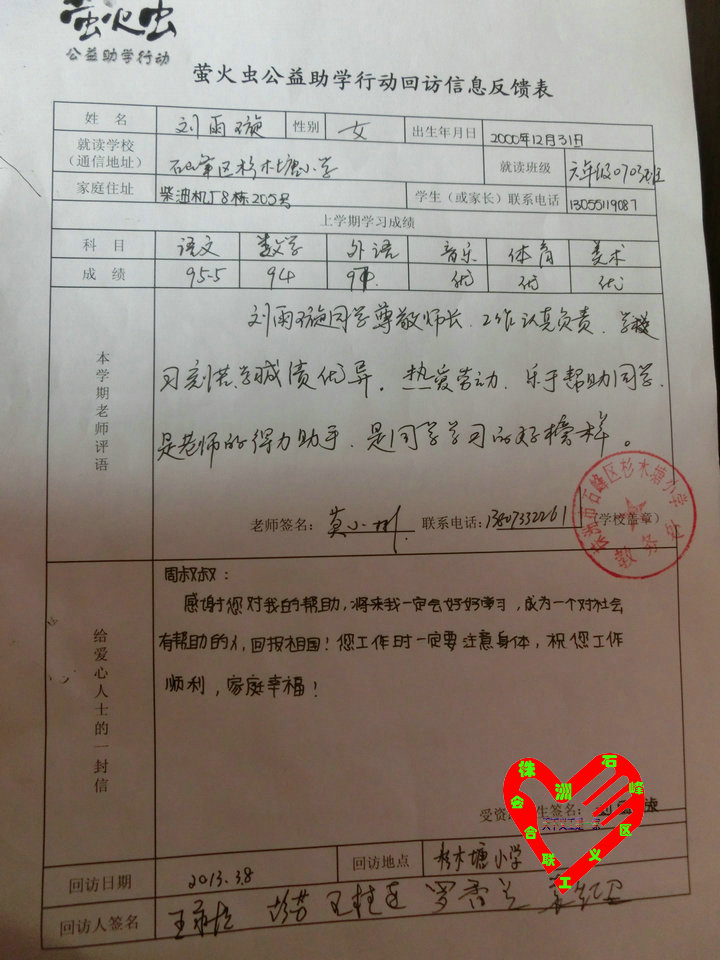 萤火虫
公益助学行动
萤火虫公益助学行动回访信息反馈表
姓 名 刘雨璇 性别 女 出生年月日 2000年12月31日
就读学校
(通信地址) 石峰区杉木塘小学 就读班级 六年级0703班
家庭住址 柴油机厂8栋205号 学生（或家长）联系电话 13055119087
上学期学习成绩
科 目 语文 数学 外语 音乐 体育 美术
成 绩 95.5 94 优 优 优
本学期老师评语
刘雨璇同学尊敬师长，工作认真负责，学
习刻苦，成绩优异。热爱劳动，乐于帮助同学，
是老师的得力助手，是同学学习的好榜样。
老师签名： 莫小 联系电话: 13807332261 （学校盖章）
株洲市石峰区杉木塘小学
教务处
给爱心人士的一封信
周叔叔：
感谢您对我的帮助，将来我一定会好好学习，成为一个对社会
有帮助的人，回报祖国！您工作时一定要注意身体，祝您工作
顺利，家庭幸福！
受资 生签名：
株洲石峰区义工联合会
回访日期 2013.3.8 回访地点 杉木塘小学
回访人签名 彭芳 罗香兰